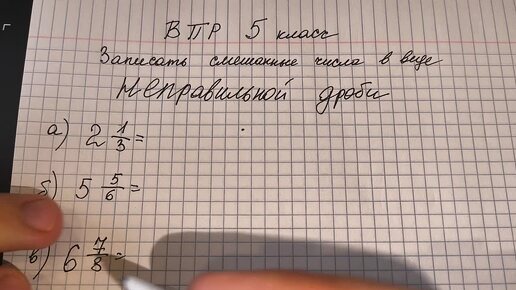 ВПР 5 класс
Записать смешанные числа в виде
неправильной дроби
а) 2 1/3 =
б) 5 5/6 =
в) 6 7/8 =